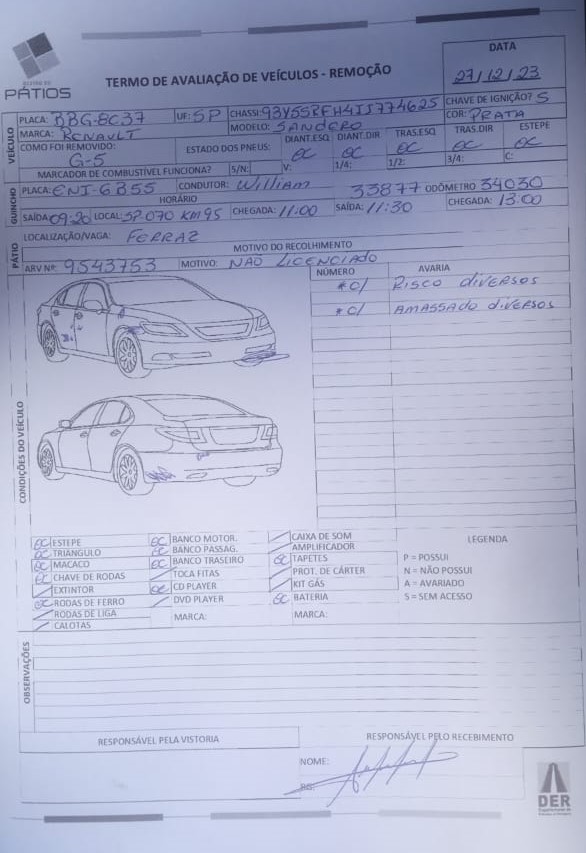 PÁTIOS
TERMO DE AVALIAÇÃO DE VEÍCULOS - REMOÇÃO
DATA
27/12/23
VEÍCULO
PLACA: BBG-8C37 UF: SP CHASSI 93Y5SRFH4JJ774625 CHAVE DE IGNIÇÃO? S
MARCA: RENAULT MODELO: SANDERO COR: PRATA
COMO FOI REMOVIDO: G-5 ESTADO DOS PNEUS: DIANT.ESQ OC DIANT.DIR OC TRAS.ESQ OC TRAS.DIR OC ESTEPE OC
MARCADOR DE COMBUSTÍVEL FUNCIONA? S/N: V: 1/4: 1/2: 3/4: C:
GUINCHO
PLACA: ENJ-6B55 CONDUTOR: William 33877 ODÔMETRO 34030
HORÁRIO
SAÍDA: 09:20 LOCAL: SP.070 KM 95 CHEGADA: 11:00 SAÍDA: 11:30 CHEGADA: 13:00
PÁTIO
LOCALIZAÇÃO/VAGA: FERRAZ
MOTIVO DO RECOLHIMENTO
ARV Nº: 9543753 MOTIVO: NÃO LICENCIADO
CONDIÇÕES DO VEÍCULO
NÚMERO AVARIA
* C/ RISCO diVERSOS
* C/ AMASSADO diVERSOS
OC ESTEPE OC BANCO MOTOR. CAIXA DE SOM LEGENDA
OC TRIANGULO OC BANCO PASSAG. AMPLIFICADOR
OC MACACO OC BANCO TRASEIRO OC TAPETES P = POSSUI
OC CHAVE DE RODAS TOCA FITAS PROT. DE CÁRTER N = NÃO POSSUI
EXTINTOR OC CD PLAYER KIT GÁS A = AVARIADO
OC RODAS DE FERRO DVD PLAYER OC BATERIA S = SEM ACESSO
RODAS DE LIGA MARCA: MARCA:
CALOTAS
OBSERVAÇÕES
RESPONSÁVEL PELA VISTORIA RESPONSÁVEL PELO RECEBIMENTO
NOME:
RG:
DER